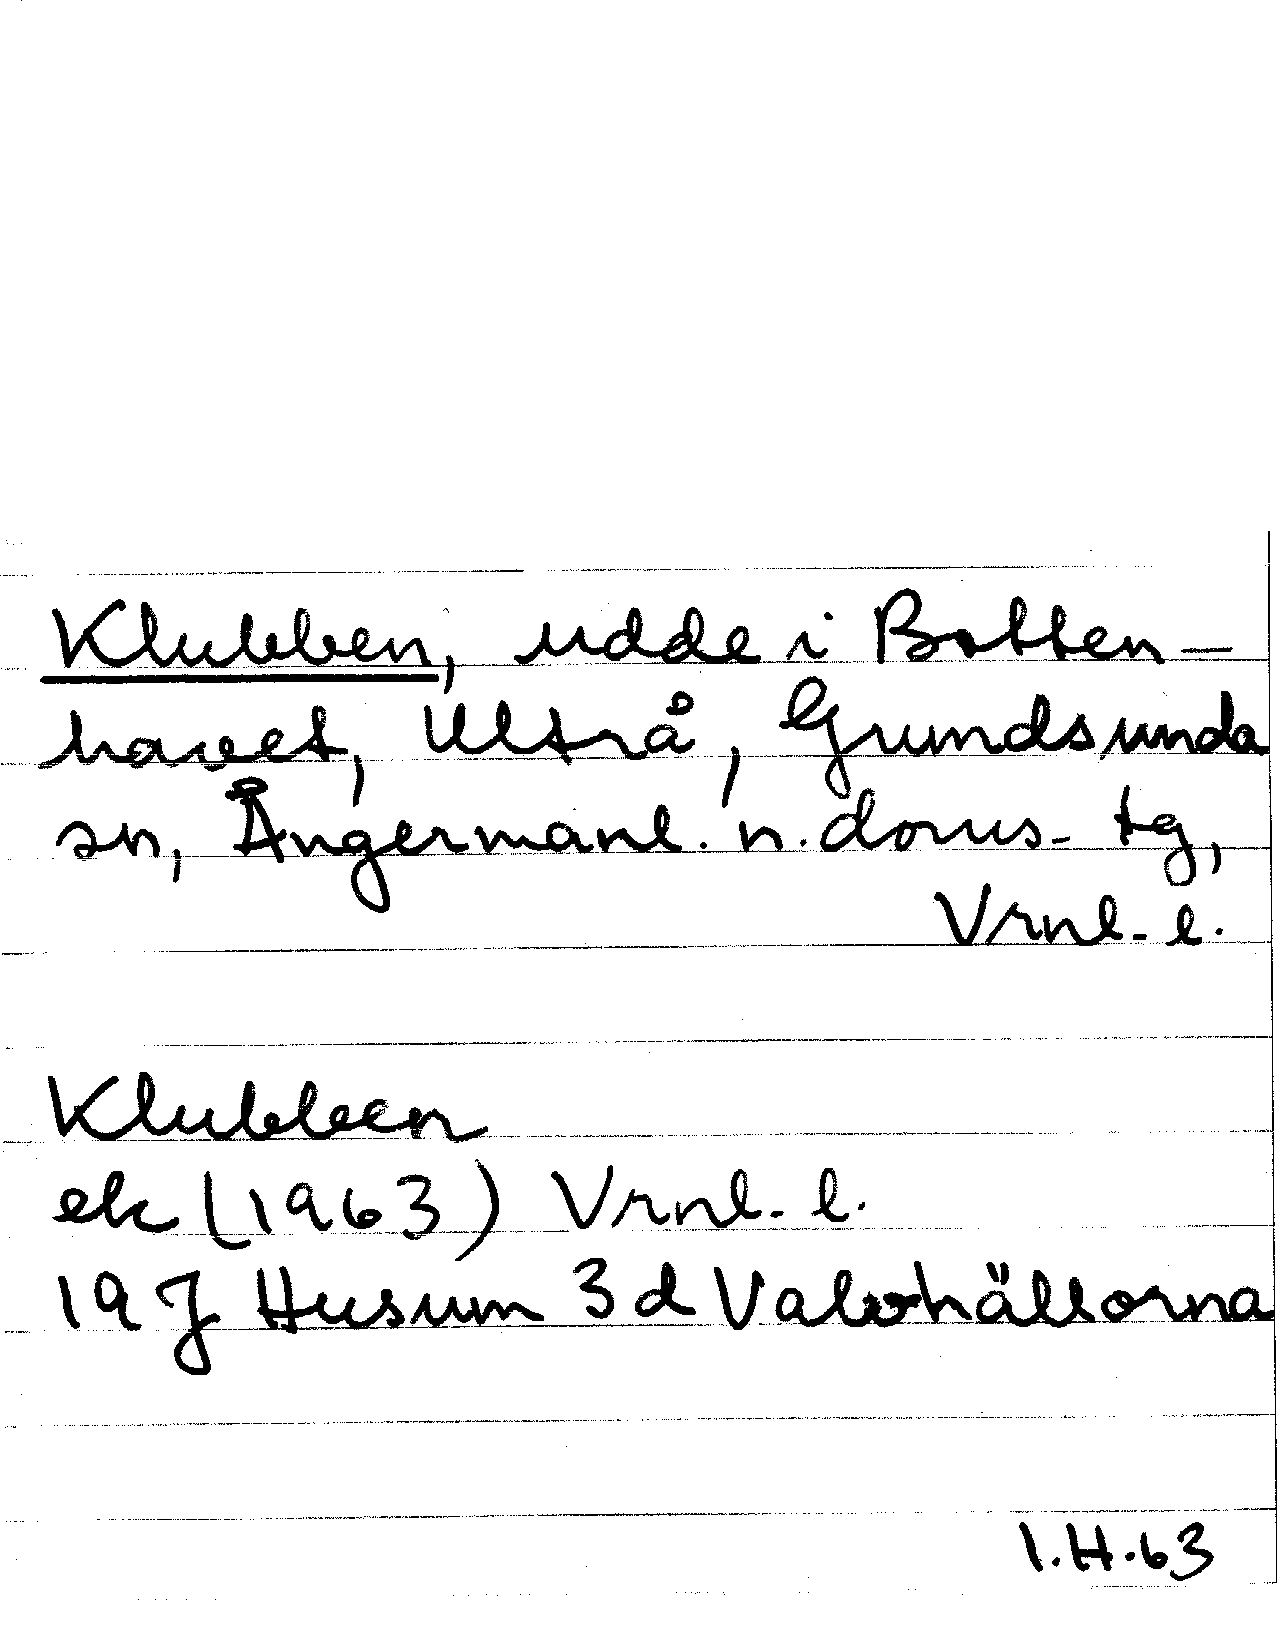 Klubben, udde i Botten-
havet, Ultrå, Grundsunda
sn, Ångermanl. n. doms- tg,
Vrnl- l.
Klubben
ek (1963) Vrnl- l.
19 J Husum 3 d Valvhällorna
I.H.63